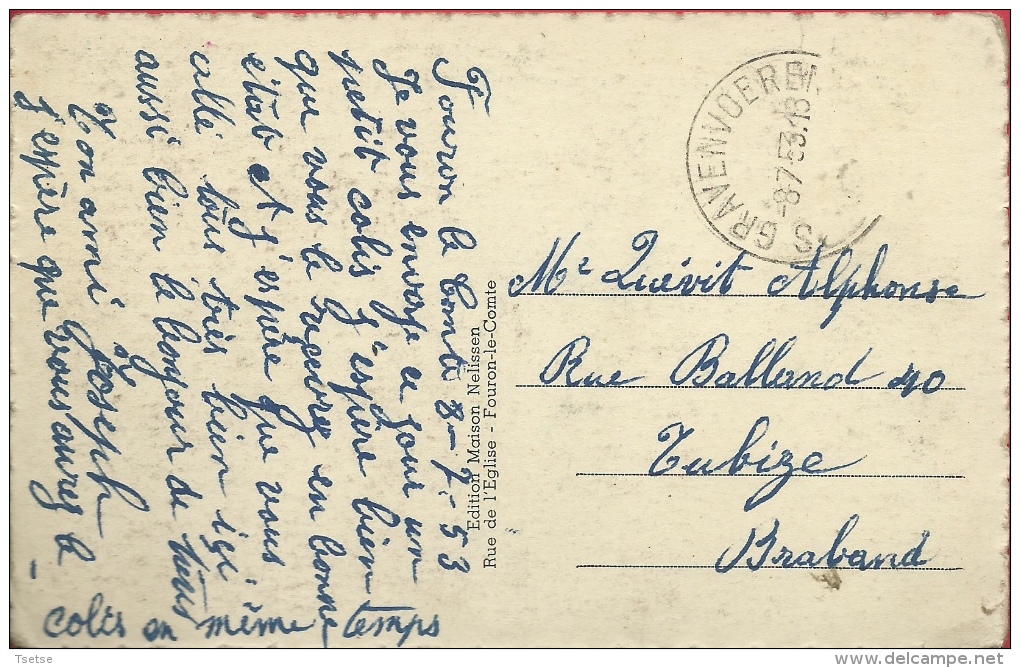 Fouron le Comte 8-7-53
Je vous envoye ce jour un
petit colis j'espère bien
que vous le recevrez en bonne
état et j'espère que vous
allé tous très bien ici
aussi bien le bonjour de tous
Ton ami Joseph
J'espère que vous aurez le
colis en même temps
Edition Maison Nelissen
Rue de l'Eglise - Fouron-le-Comte
S GRAVENVOEREN
-8.7.53.18
Mr Quévit Alphonse
Rue Balland 40
Tubize
Braband
Tsetse
delcampe.net